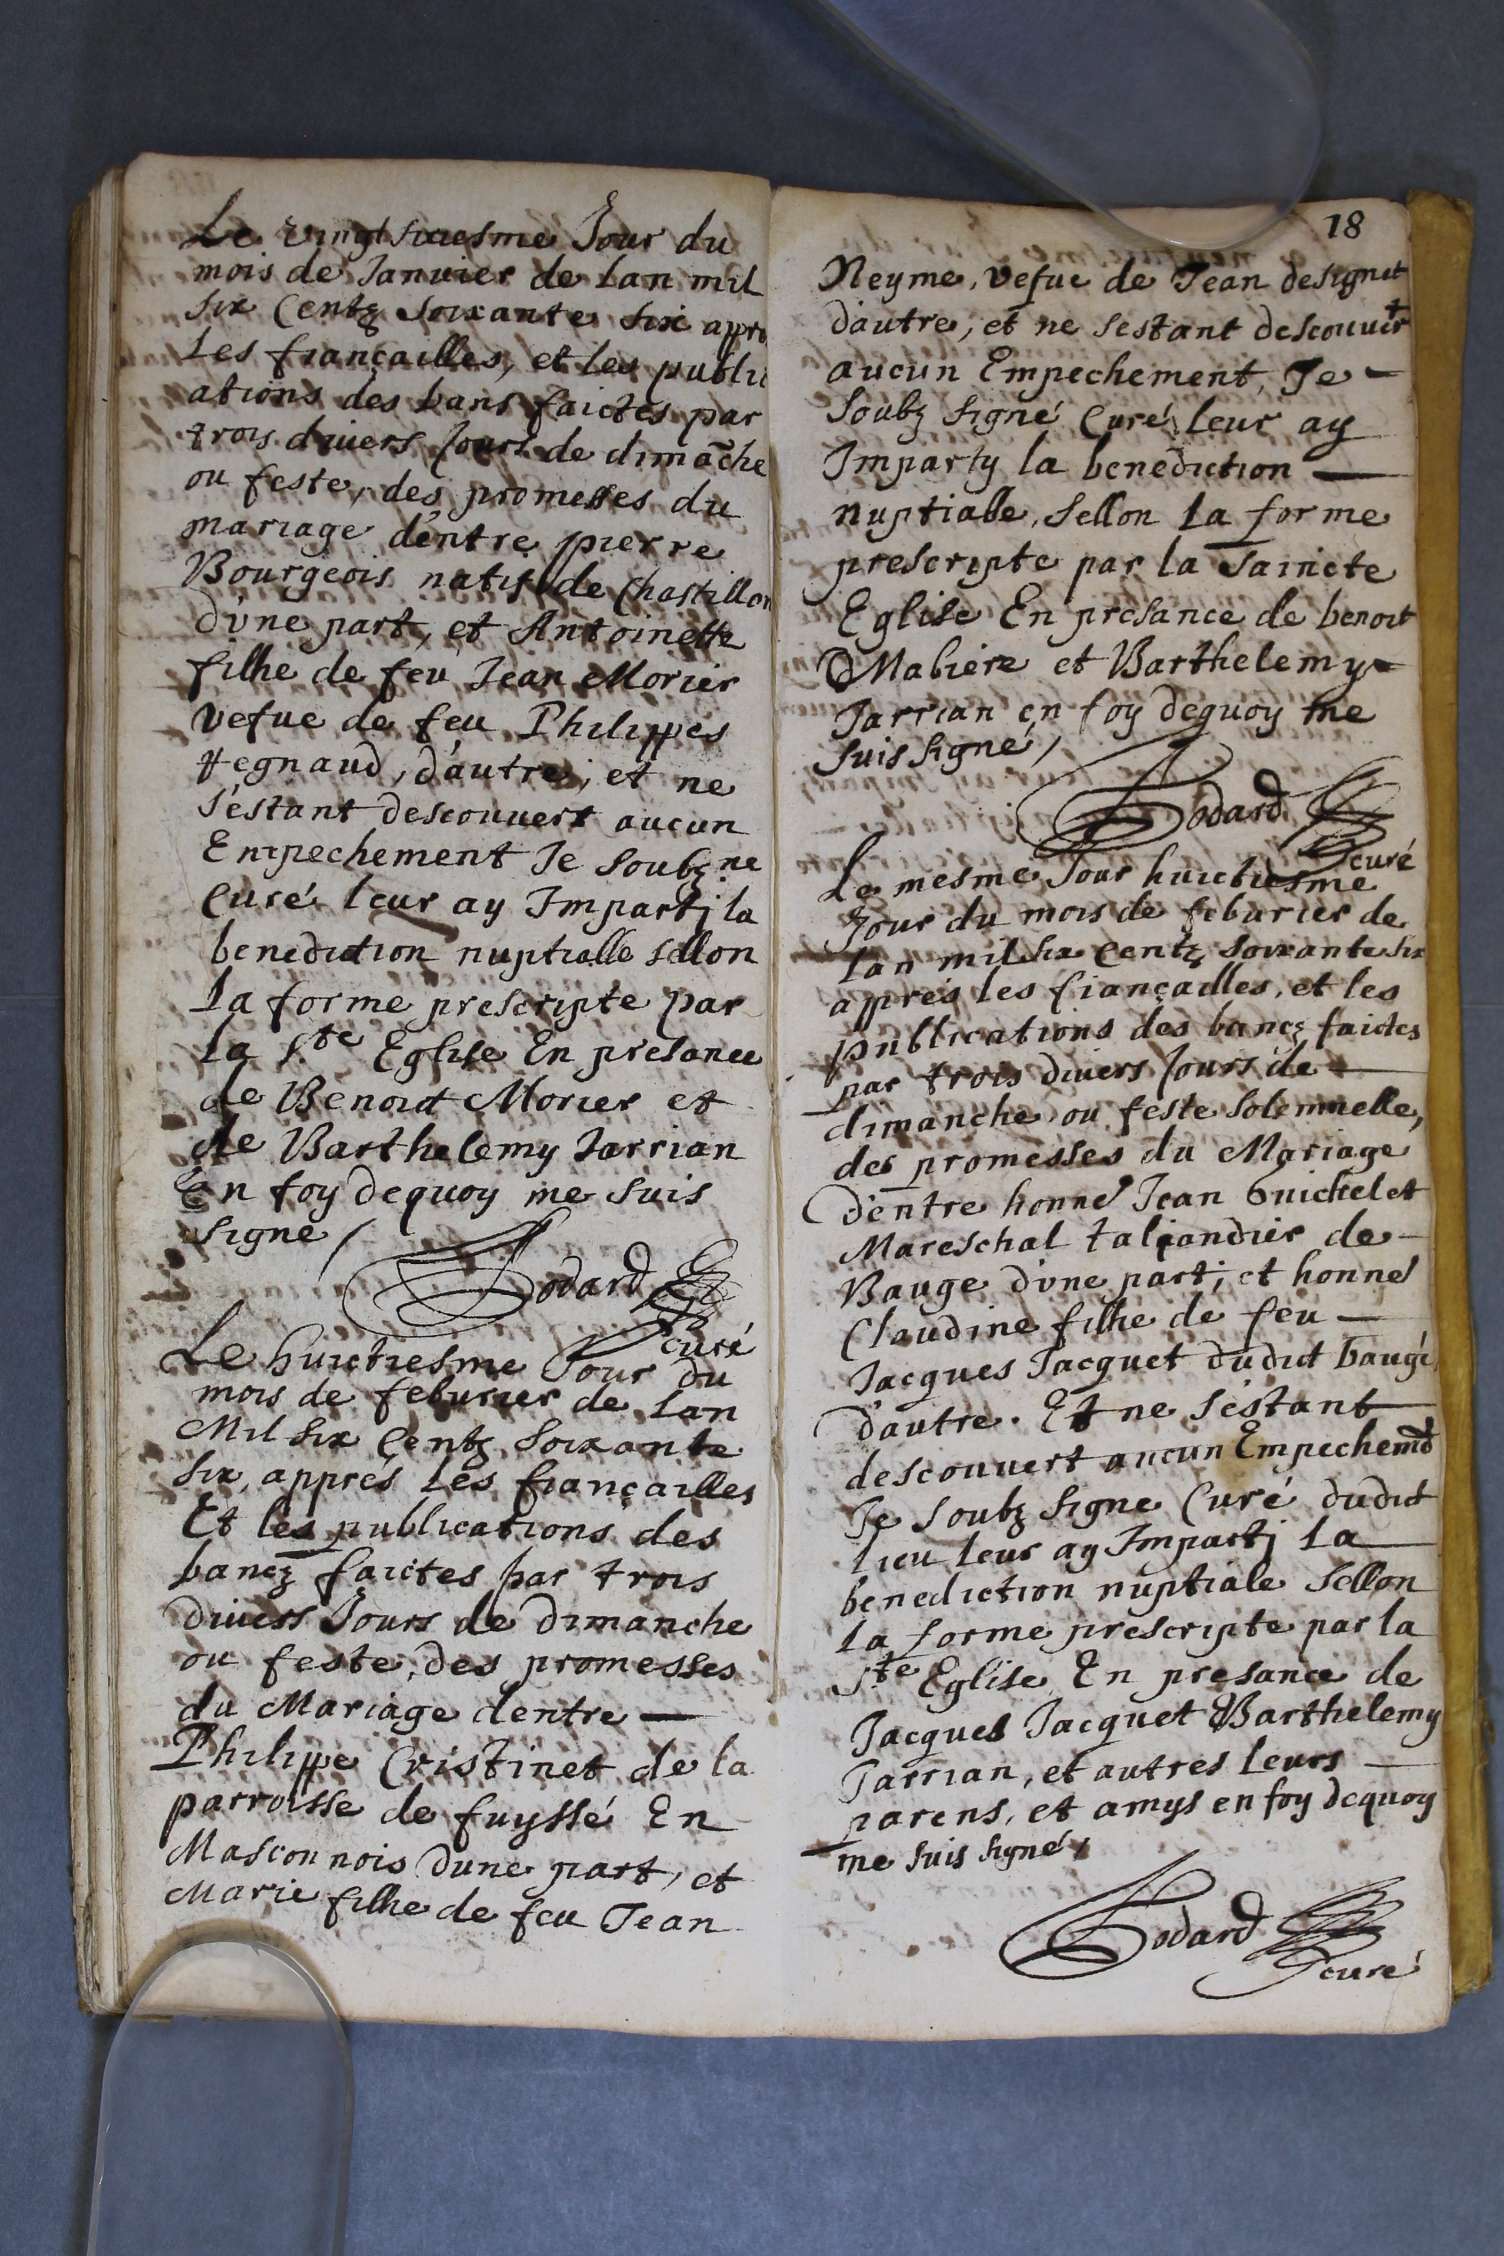 Le vingtsixiesme Jour du
mois de Janvier de Lan mil
six Centz soixante six appres
Les fiançailles, et les public
ations des bans faictes par
trois divers Jours de dimãche
ou feste, des promesses du
mariage d'entre pierre
Bourgeois natif de Chastillon
d'vne part, et Antoinette
filhe de feu Jean Morier
vefue de feu Philippes
regnaud, d'autre; et ne
s'estant descouuert aucun
Empechement Je soubz.ne
Curé leur ay Impartj la
benediction nuptialle sellon
La forme prescripte par
La Ste Eglise En presance
de Benoict Morier et
de Barthelemy Jarrian
En foy dequoy me suis
signé /
Godard
curé
Le huictiesme Jour du
mois de feburier de Lan
Mil six Centz soixante
six, apprés Les fiançailles
Et les publications des
bancz faictes par trois
divers Jours de dimanche
ou feste, des promesses
du Mariage dentre —
Philippe Cristinet de la
parroisse de fuyssé En
Masconnois d'une part, et
Marie filhe de feu Jean
18
Neyme, vefue de Jean designet
d'autre, et ne sestant descouuert
aucun Empechement, Je —
soubz signé Curé leur ay
Imparty la benediction —
nuptialle, sellon La forme
prescripte par la saincte
Eglise En presance de benoit
Mabiere et Barthelemy
Jarrian en foy dequoy me
suis signé /
Godard
curé
Le mesme Jour huictiesme
Jour du mois de feburier de
Lan mil six Centz soixante six
appres les fiançailles, et les
publications des bancz faictes
par trois divers Jours de —
dimanche ou feste solemnelle,
des promesses du Mariage
d'entre honne Jean Guichelet
Mareschal taliandier de —
Bauge d'vne part; et honne
Claudine filhe de feu —
Jacques Jacquet dudict baugé
d'autre. Et ne s'estant
descouvert aucun Empechemt
Je soubz signe Curé dudict
lieu leur ay Impartj La
benediction nuptiale sellon
La forme prescripte par la
Ste Eglise En presance de
Jacques Jacquet Barthelemy
Jarrian, et autres Leurs —
parens, et amys en foy dequoy
me suis signé /
Godard
curé